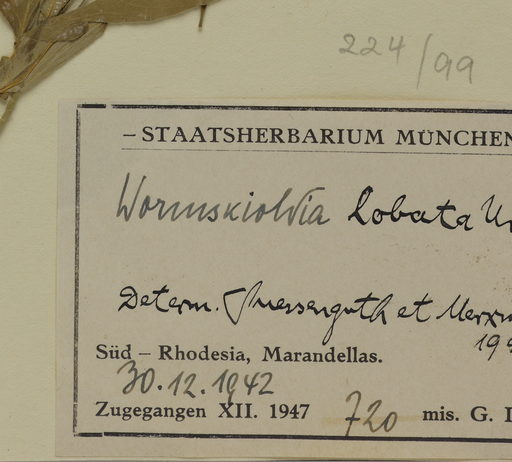 224/99
– STAATSHERBARIUM MÜNCHEN
Wormskioldia lobata Ur
Determ. Suessenguth et Merxm
194
Süd – Rhodesia, Marandellas.
30.12.1942
Zugegangen XII. 1947 720 mis. G. D